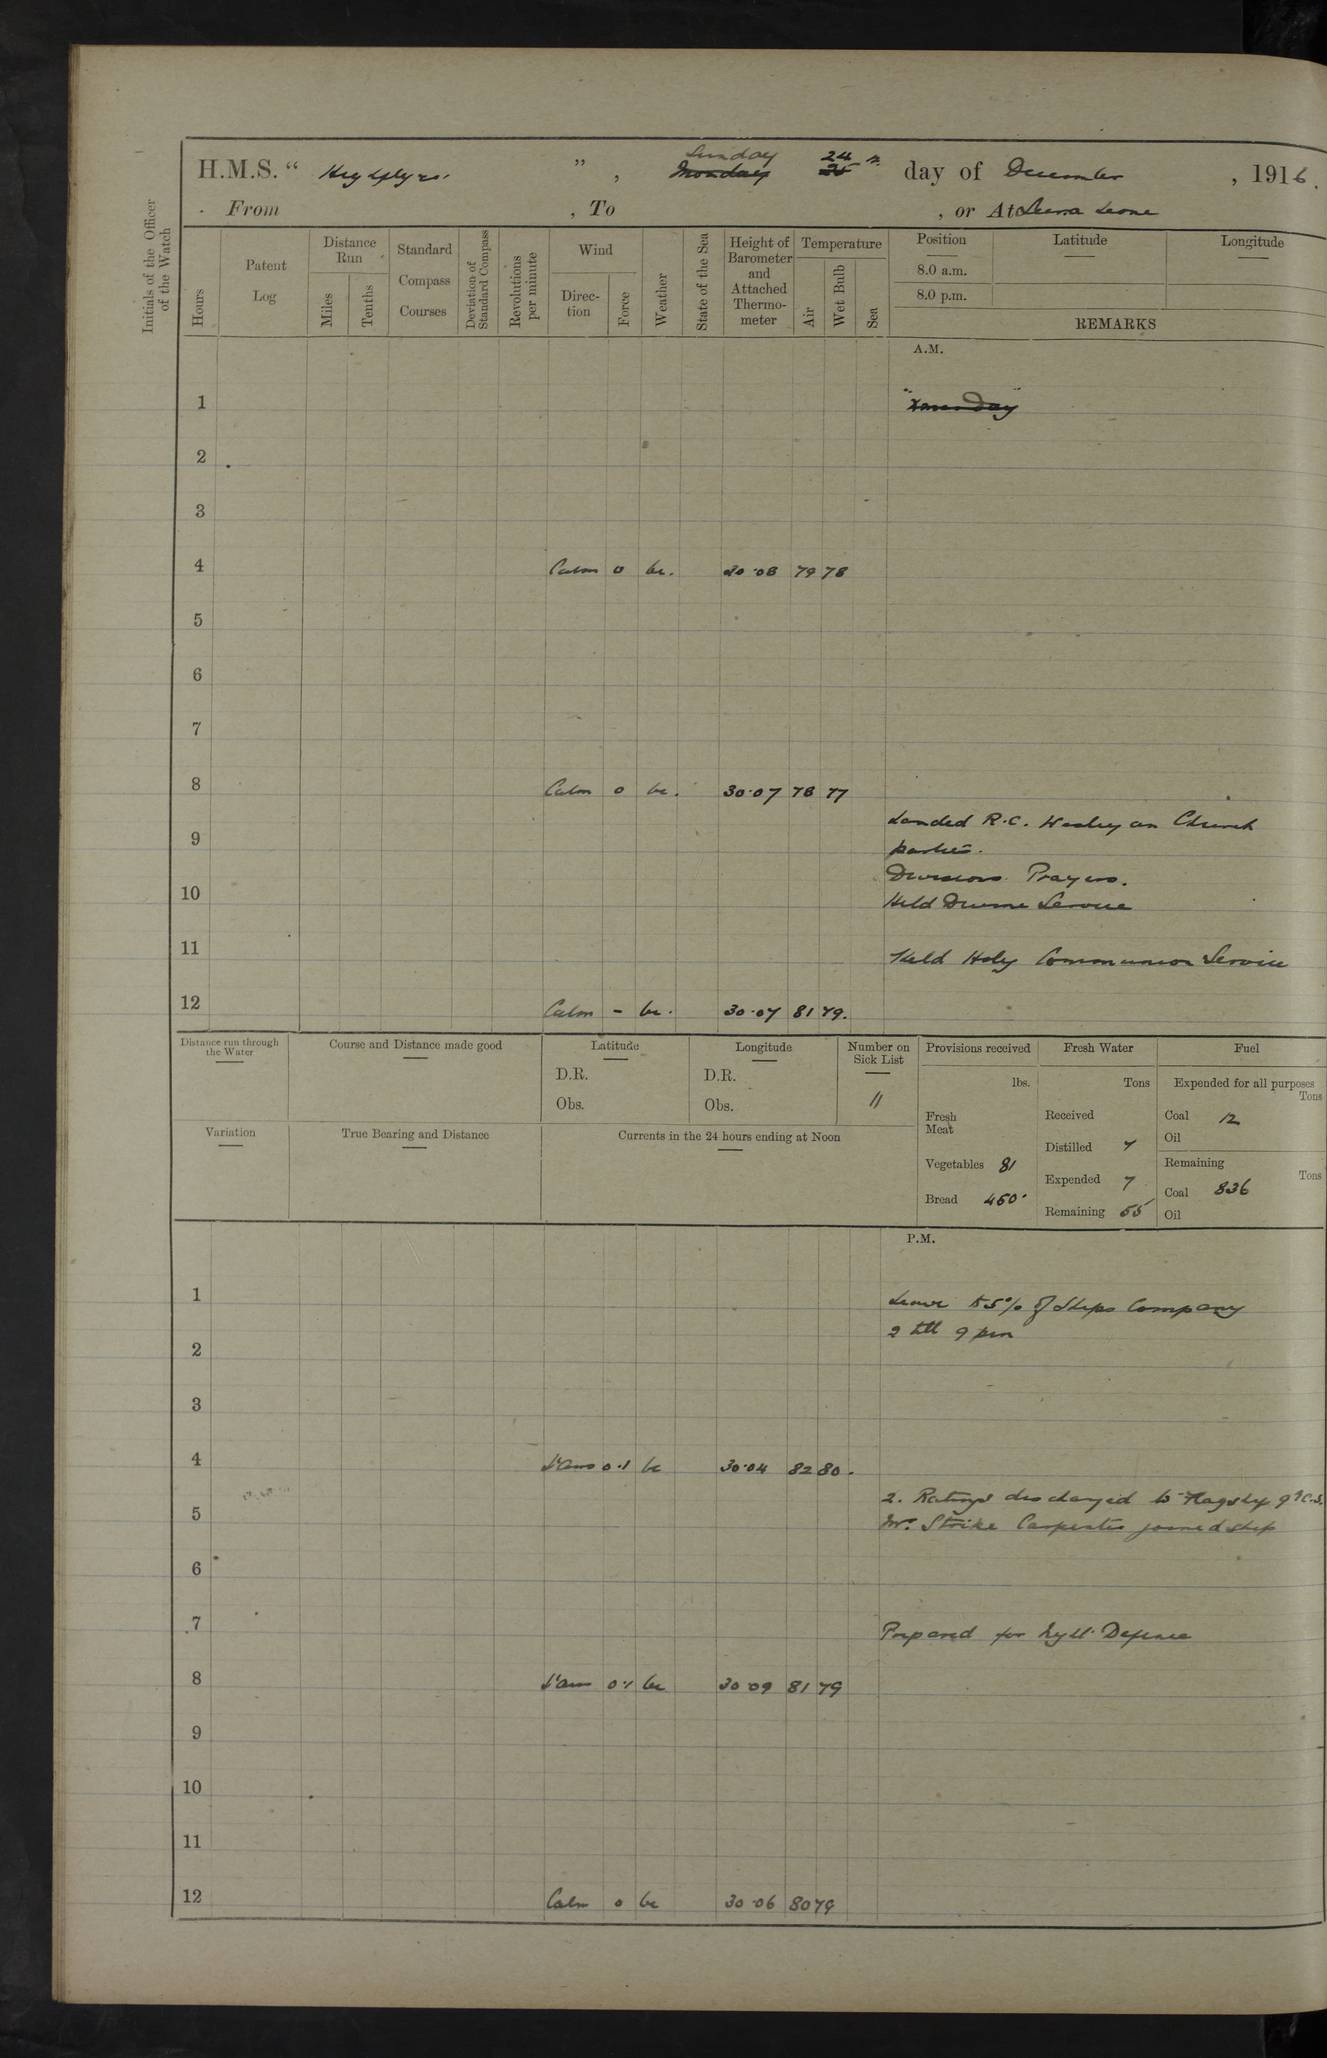 H.M.S. “ Highflyer ” , Sunday Monday 24th 25 day of December , 1916.
From , To , or At Sierra Leone
Initials of the Officer of the Watch
Hours
Patent Log
Distance Run
Miles
Tenths
Standard Compass Courses
Deviation of Standard Compass
Revolutions per minute
Wind
Direc- tion
Force
Weather
State of the Sea
Height of Barometer and Attached Thermo- meter
Temperature
Air
Wet Bulb
Sea
Position Latitude Longitude
8.0 a.m.
8.0 p.m.
REMARKS
A.M.
1 "Xmas Day"
2
3
4 Calm 0 bc. 30.08 79 78
5
6
7
8 Calm 0 bc. 30.07 78 77
Landed R.C. Wesleyan Church
9 parties.
Divisions Prayers.
10 Held Divine Service
11 Held Holy Communion Service
12 Calm - bc. 30.07 81 79.
Distance run through the Water
Course and Distance made good
Latitude
D.R.
Obs.
Longitude
D.R.
Obs.
Number on Sick List
11
Provisions received
lbs.
Fresh Meat
Vegetables 81
Bread 450
Fresh Water
Tons
Received
Distilled 7
Expended 7
Remaining 55
Fuel
Expended for all purposes
Tons
Coal 12
Oil
Remaining
Tons
Coal 836
Oil
Variation
True Bearing and Distance
Currents in the 24 hours ending at Noon
P.M.
1 Leave to 5% of Ships Company
2 till 9 pm
2
3
4 0.1 bc 30.04 82 80.
2. Ratings discharged to Flagship 9th C.S.
5 Mr. Strike Carpenter joined ship
6
7 Prepared for Night Defence
8 0.1 bc 30.09 81 79
9
10
11
12 Calm 0 bc 30.06 80 79